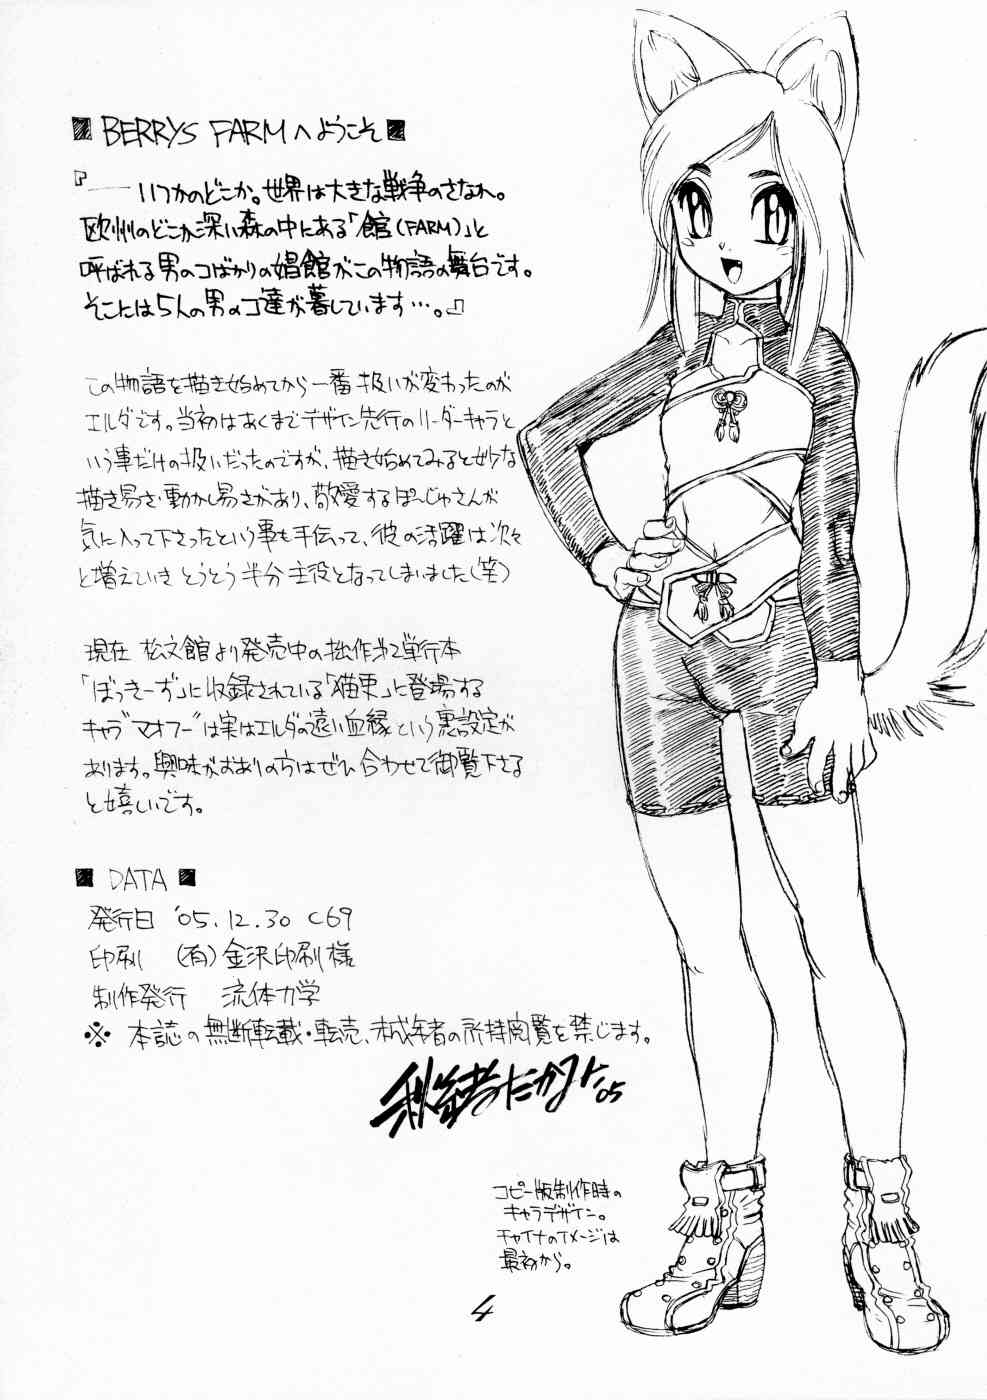 ■ BERRYS FARMへようこそ ■
『――いつかのどこか。世界は大きな戦争のさなか。
欧州のどこか深い森の中にある「館(FARM)」と
呼ばれる男のコばかりの娼館がこの物語の舞台です。
そこには5人の男のコ達が暮しています…。』
この物語を描き始めてから一番扱いが変わったのが
エルダです。当初はあくまでデザイン先行のリーダーキャラと
いう事だけの扱いだったのですが、描き始めてみると妙な
描き易さ・動かし易さがあり、敬愛するぽーじゅさんが
気に入って下さったという事も手伝って、彼の活躍は次々
と増えていき とうとう半分主役となってしまいました(笑)
現在 松文館より発売中の拙作才2単行本
「ぼっきーず」に収録されている「猫東」に登場する
キャラ"マオフー"は実はエルダの遠い血縁という裏設定が
あります。興味がおありの方はぜひ合わせて御覧下さる
と嬉しいです。
■ DATA ■
発行日 '05.12.30 C69
印刷 (有)金沢印刷様
制作発行 流体力学
※ 本誌の無断転載・転売、未成年者の所持閲覧を禁じます。
たかみ '05
コピー版制作時の
キャラデザイン。
チャイナのイメージは
最初から。
4